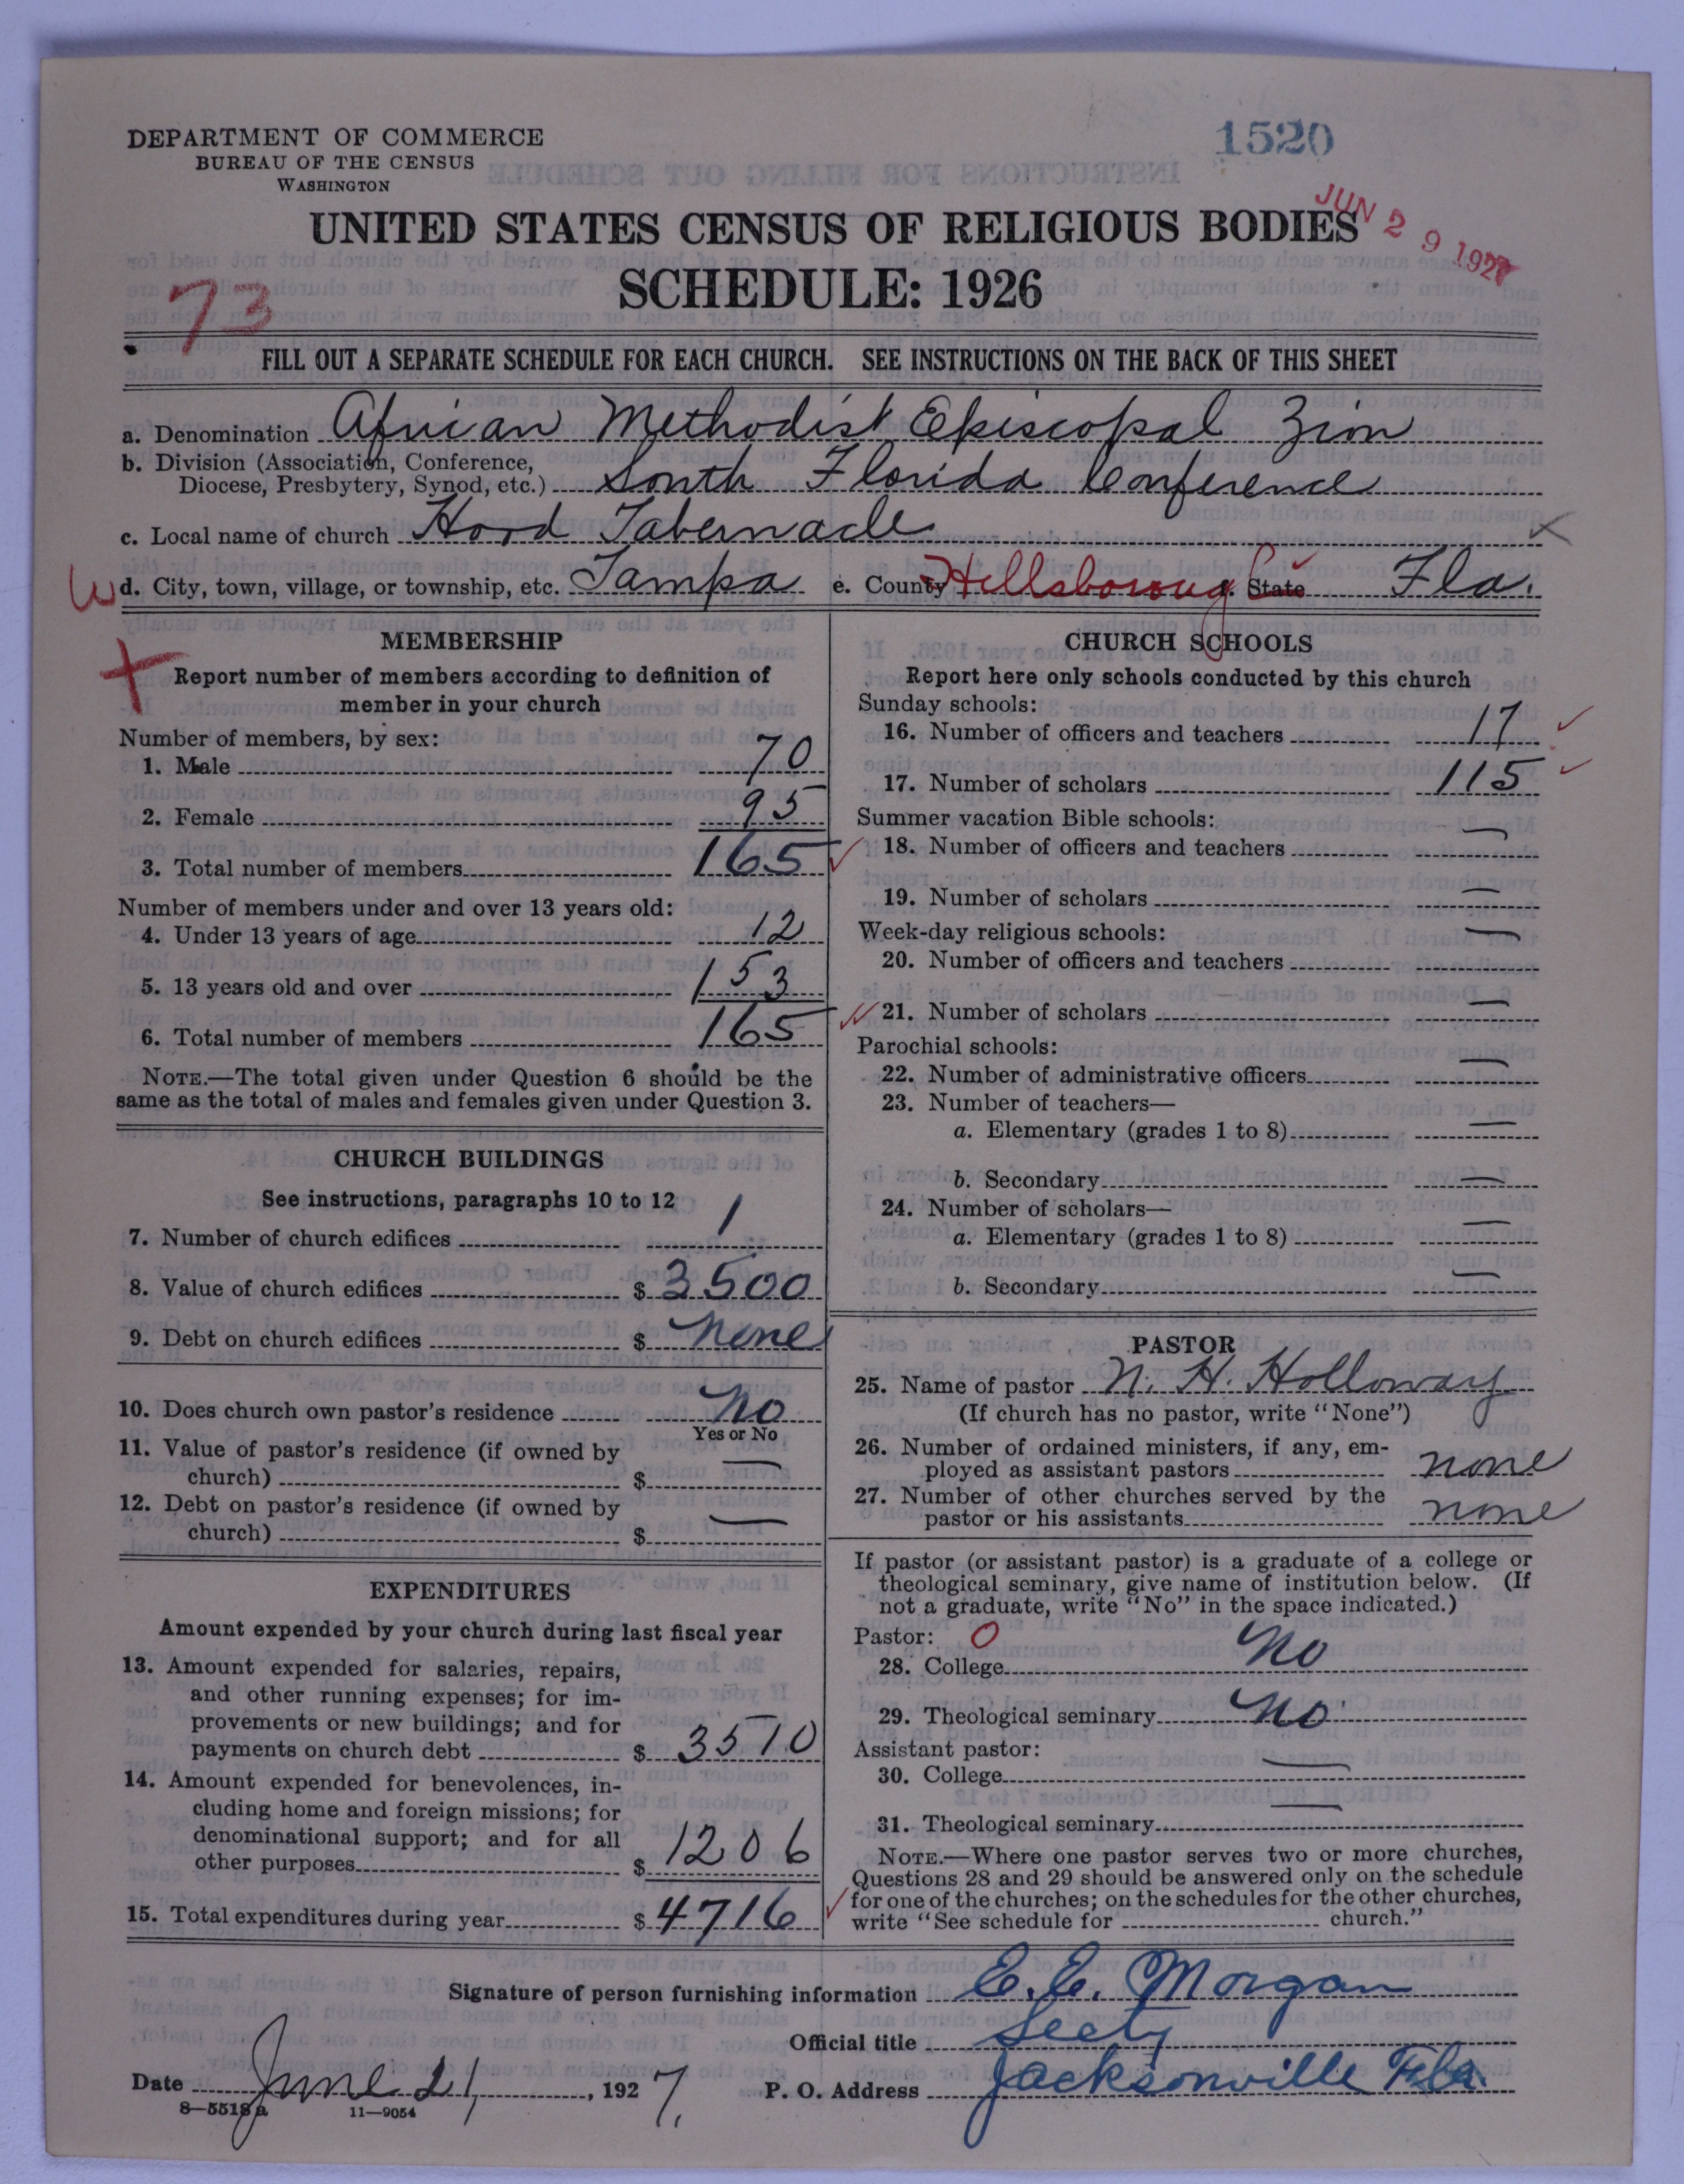 1520
DEPARTMENT OF COMMERCE
BUREAU OF THE CENSUS
WASHINGTON
JUN 29 1927
UNITED STATES CENSUS OF RELIGIOUS BODIES
SCHEDULE: 1926
73
FILL OUT A SEPARATE SCHEDULE FOR EACH CHURCH. SEE INSTRUCTIONS ON THE BACK OF THIS SHEET
a. Denomination African Methodist Episcopal Zion
b. Division (Association, Conference,
Diocese, Presbytery, Synod, etc.) South Florida Conference
c. Local name of church Hood Tabernacle
d. City, town, village, or township, etc. Tampa e. County Hillsboroug State Fla.
MEMBERSHIP
Report number of members according to definition of
member in your church
Number of members, by sex:
1. Male 70
2. Female 95
3. Total number of members 165
Number of members under and over 13 years old:
4. Under 13 years of age 12
5. 13 years old and over 153
6. Total number of members 165
NOTE.—The total given under Question 6 should be the
same as the total of males and females given under Question 3.
CHURCH BUILDINGS
See instructions, paragraphs 10 to 12
7. Number of church edifices 1
8. Value of church edifices $ 3500
9. Debt on church edifices $ none
10. Does church own pastor's residence No
Yes or No
11. Value of pastor's residence (if owned by
church) $ —
12. Debt on pastor's residence (if owned by
church) $ —
EXPENDITURES
Amount expended by your church during last fiscal year
13. Amount expended for salaries, repairs,
and other running expenses; for im-
provements or new buildings; and for
payments on church debt $ 3510
14. Amount expended for benevolences, in-
cluding home and foreign missions; for
denominational support; and for all
other purposes $ 1206
15. Total expenditures during year $ 4716
CHURCH SCHOOLS
Report here only schools conducted by this church
Sunday schools:
16. Number of officers and teachers 17
17. Number of scholars 115
Summer vacation Bible schools:
18. Number of officers and teachers —
19. Number of scholars —
Week-day religious schools:
20. Number of officers and teachers —
21. Number of scholars —
Parochial schools:
22. Number of administrative officers —
23. Number of teachers—
a. Elementary (grades 1 to 8) —
b. Secondary —
24. Number of scholars—
a. Elementary (grades 1 to 8) —
b. Secondary —
PASTOR
25. Name of pastor N. H. Holloway
(If church has no pastor, write "None")
26. Number of ordained ministers, if any, em-
ployed as assistant pastors none
27. Number of other churches served by the
pastor or his assistants none
If pastor (or assistant pastor) is a graduate of a college or
theological seminary, give name of institution below. (If
not a graduate, write "No" in the space indicated.)
Pastor: O
28. College No
29. Theological seminary No
Assistant pastor:
30. College —
31. Theological seminary —
NOTE.—Where one pastor serves two or more churches,
Questions 28 and 29 should be answered only on the schedule
for one of the churches; on the schedules for the other churches,
write "See schedule for church."
Signature of person furnishing information E. E. Morgan
Official title Secty
Date June 21, 1927. P. O. Address Jacksonville Fla.
8—5518a 11—9054